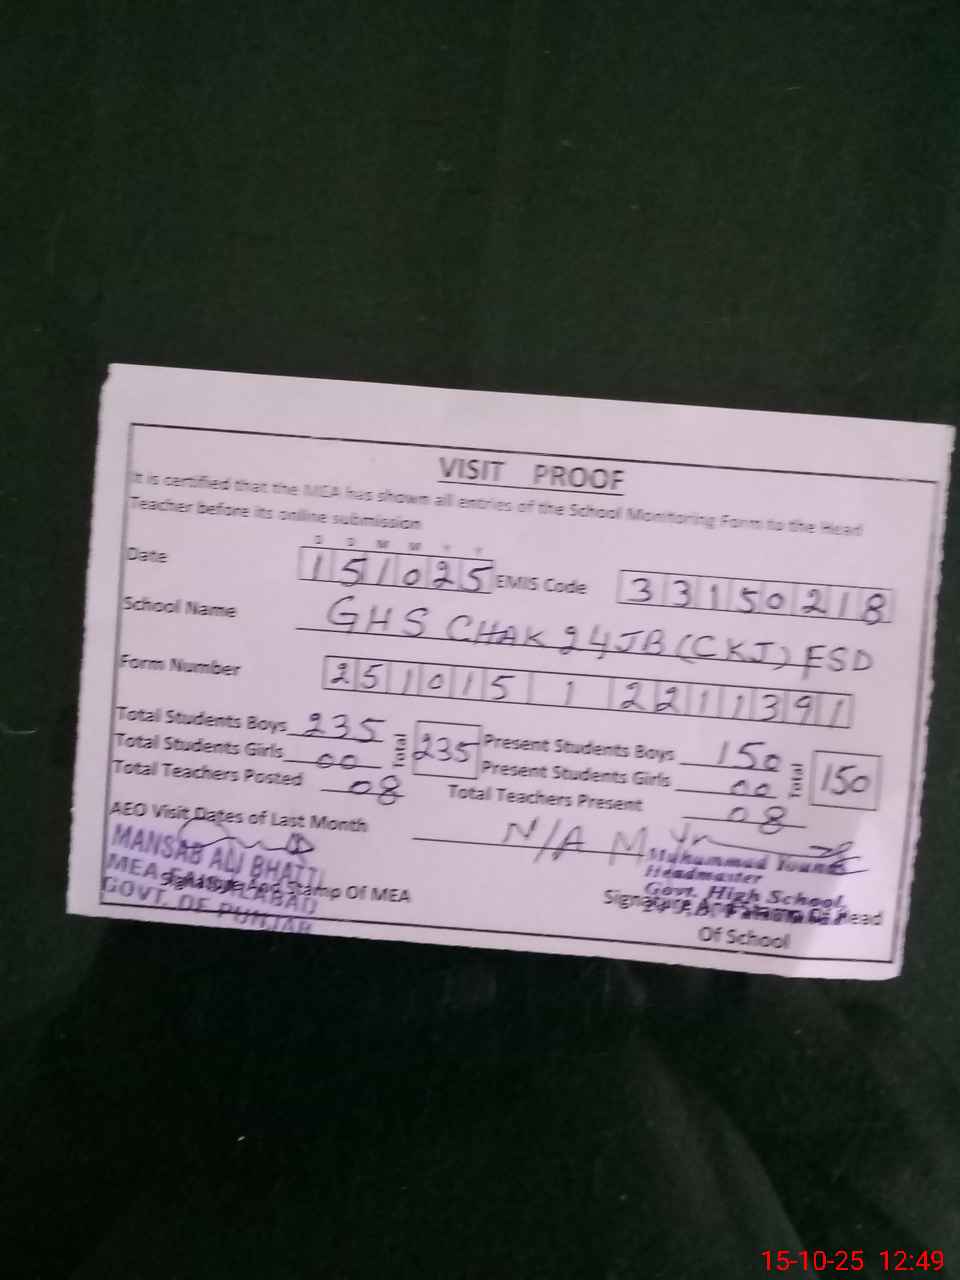 VISIT PROOF
It is certified that the MEA has shown all entries of the School Monitoring Form to the Head
Teacher before its online submission
D D M M Y Y
Date 151025 EMIS Code 33150218
School Name GHS CHAK 24JB (CKJ) FSD
Form Number 251015 1 2211391
Total Students Boys 235 Total 235 Present Students Boys 150 Total 150
Total Students Girls 00 Present Students Girls 00
Total Teachers Posted 08 Total Teachers Present 08
AEO Visit Dates of Last Month N/A
MANSAB ALI BHATTI
MEA FAISALABAD
GOVT. OF PUNJAB
Signature And Stamp Of MEA
Muhammad Younas
Headmaster
Govt. High School,
Signature And Stamp Of Head
Of School
15-10-25 12:49